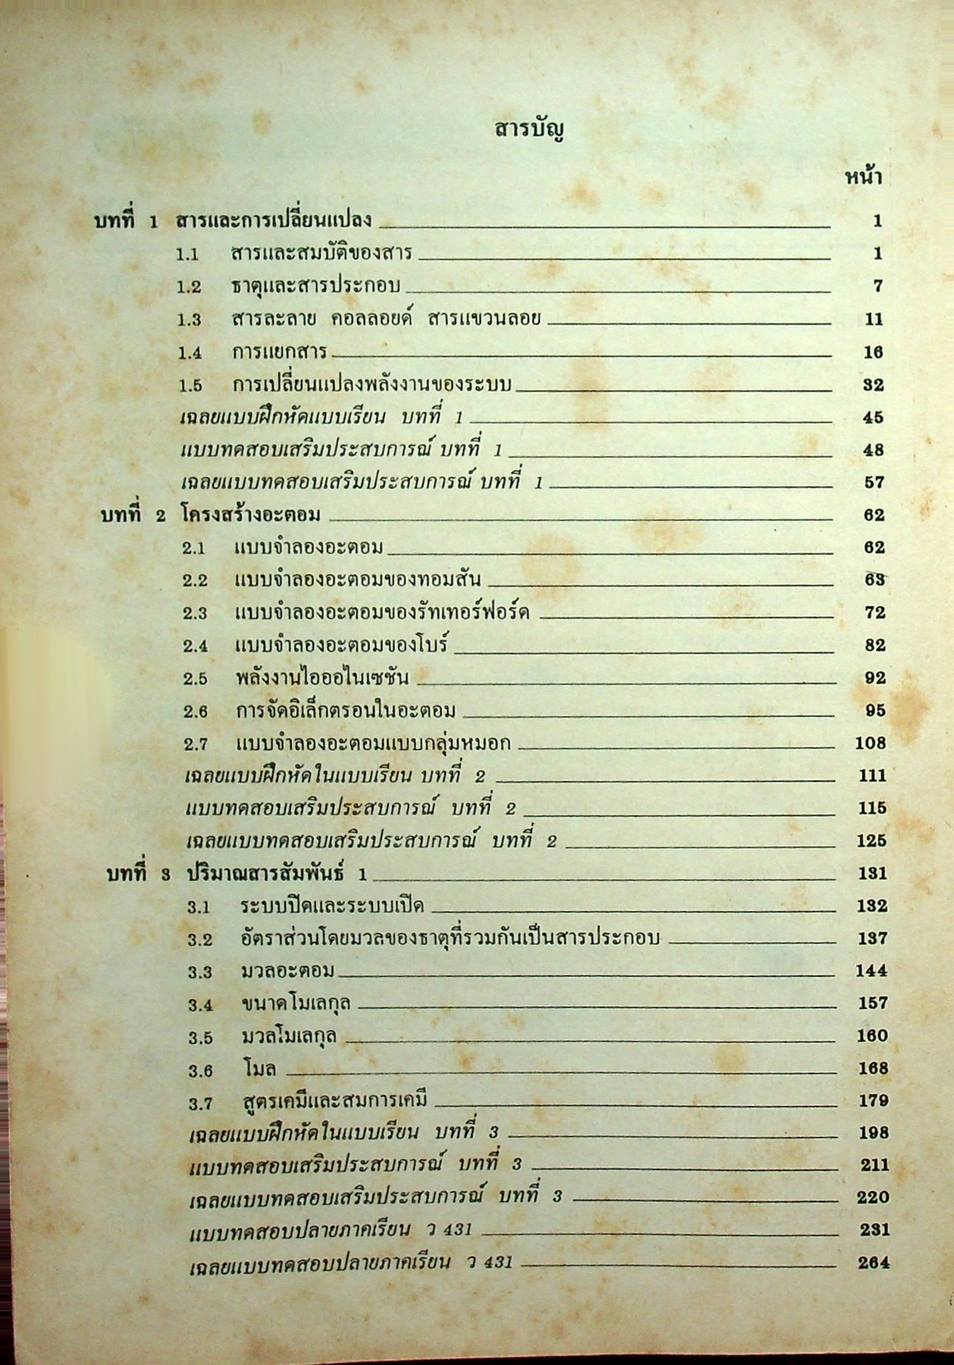 สารบัญ
หน้า
บทที่ 1 สารและการเปลี่ยนแปลง 1
1.1 สารและสมบัติของสาร 1
1.2 ธาตุและสารประกอบ 7
1.3 สารละลาย คอลลอยด์ สารแขวนลอย 11
1.4 การแยกสาร 16
1.5 การเปลี่ยนแปลงพลังงานของระบบ 32
เฉลยแบบฝึกหัดแบบเรียน บทที่ 1 45
แบบทดสอบเสริมประสบการณ์ บทที่ 1 48
เฉลยแบบทดสอบเสริมประสบการณ์ บทที่ 1 57
บทที่ 2 โครงสร้างอะตอม 62
2.1 แบบจำลองอะตอม 62
2.2 แบบจำลองอะตอมของทอมสัน 63
2.3 แบบจำลองอะตอมของรัทเทอร์ฟอร์ด 72
2.4 แบบจำลองอะตอมของโบร์ 82
2.5 พลังงานไอออไนเซชัน 92
2.6 การจัดอิเล็กตรอนในอะตอม 95
2.7 แบบจำลองอะตอมแบบกลุ่มหมอก 108
เฉลยแบบฝึกหัดในแบบเรียน บทที่ 2 111
แบบทดสอบเสริมประสบการณ์ บทที่ 2 115
เฉลยแบบทดสอบเสริมประสบการณ์ บทที่ 2 125
บทที่ 3 ปริมาณสารสัมพันธ์ 1 131
3.1 ระบบปิดและระบบเปิด 132
3.2 อัตราส่วนโดยมวลของธาตุที่รวมกันเป็นสารประกอบ 137
3.3 มวลอะตอม 144
3.4 ขนาดโมเลกุล 157
3.5 มวลโมเลกุล 160
3.6 โมล 168
3.7 สูตรเคมีและสมการเคมี 179
เฉลยแบบฝึกหัดในแบบเรียน บทที่ 3 198
แบบทดสอบเสริมประสบการณ์ บทที่ 3 211
เฉลยแบบทดสอบเสริมประสบการณ์ บทที่ 3 220
แบบทดสอบปลายภาคเรียน ว 431 231
เฉลยแบบทดสอบปลายภาคเรียน ว 431 264